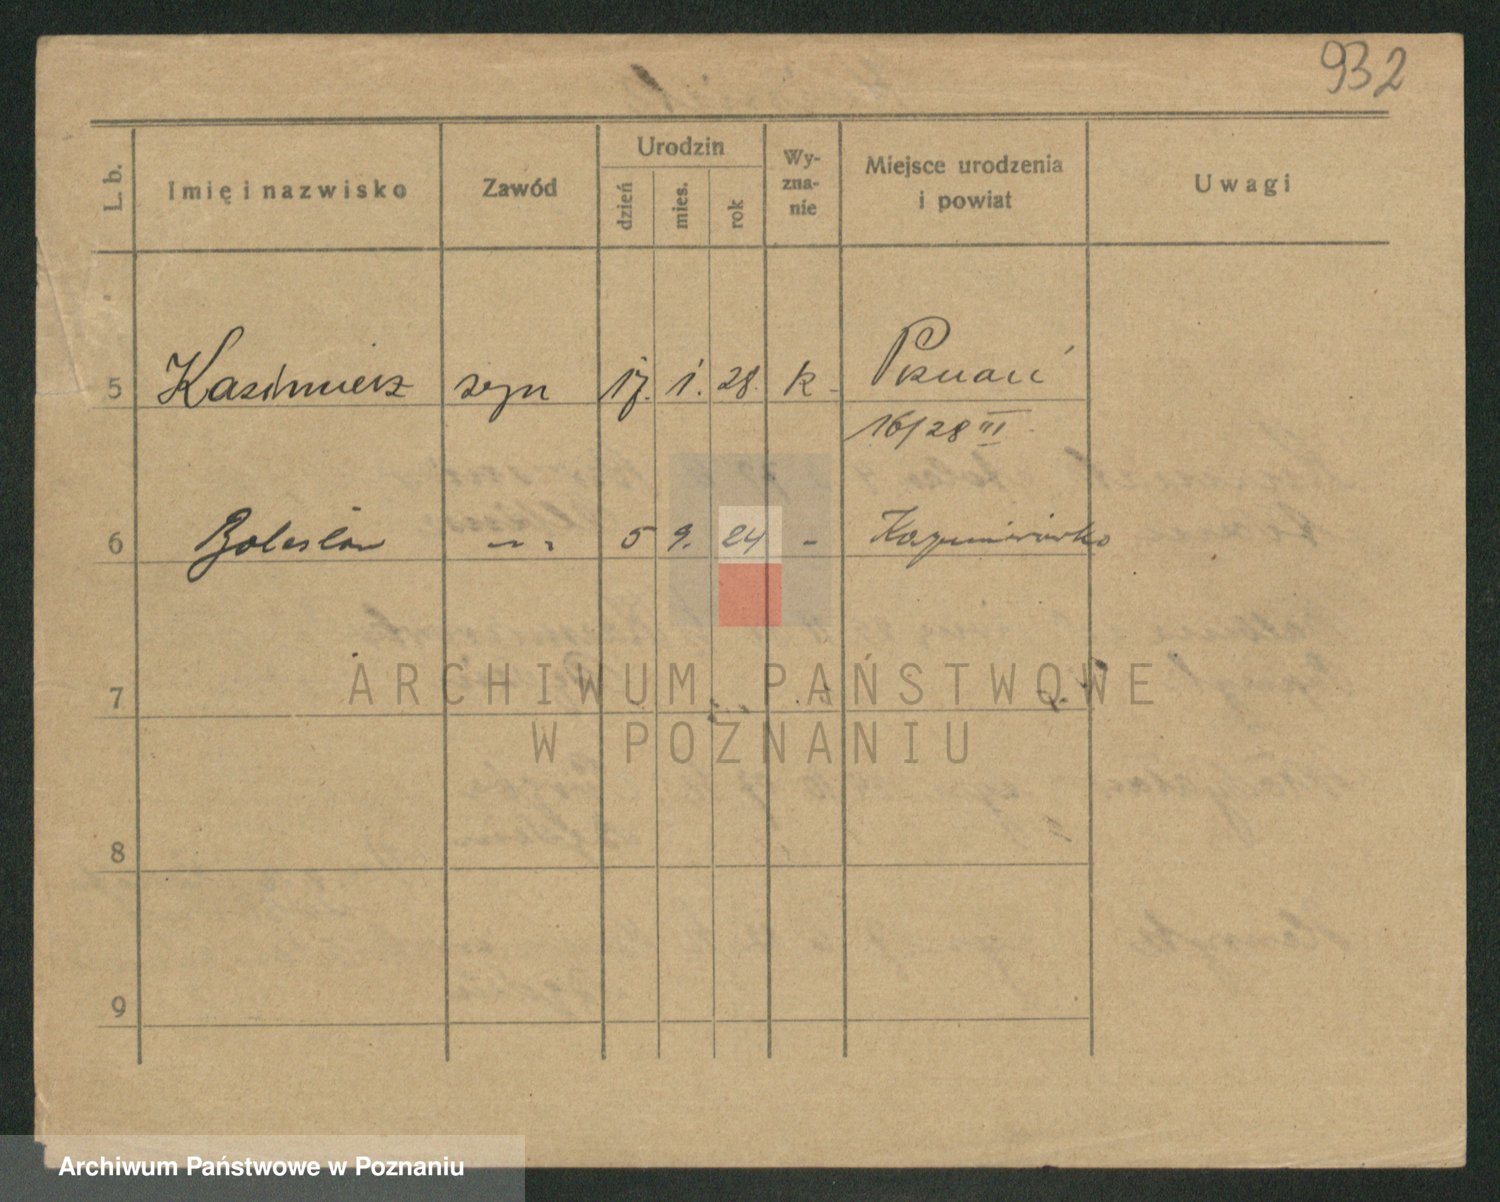 932
L. b.
Imię i nazwisko
Zawód
Urodzin
dzień
mies.
rok
Wy-
zna-
nie
Miejsce urodzenia
i powiat
Uwagi
5 Kazimierz syn 17. 1. 28. k - Poznań
16/28 III
6 Bolesław -„- 5 9. 24 -
7
8
9
ARCHIWUM PAŃSTWOWE
W POZNANIU
Archiwum Państwowe w Poznaniu